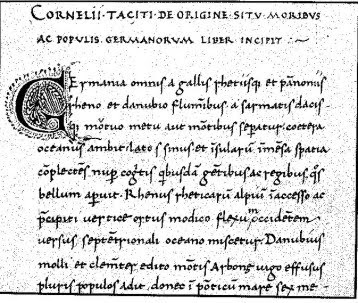 CORNELII · TACITI · DE ORIGINE · SITV · MORIBVS
AC POPVLIS · GERMANORVM LIBER INCIPIT
GErmania omnis a gallis rhetiisqꝫ et pãnoniis
rheno et danubio flumĩbus a sarmatis dacisqꝫ
mõtuo metu aut mõtibus sepatur: cœtera
oceanus ambit: lato s sinus et ĩsularũ ĩmẽsa spatia
cõplectẽs nup cogtis qbusdã gẽtibus ac regibus qs
bellum apuit. Rhenus rheticarũ alpiũ ĩaccesso ac
pcipiti vertice ortus modico flexu ĩ occidẽtem
versus septẽtrionali oceano miscetur. Danubius
molli et clemẽter edito mõtis Arbonę iugo effusus
pluris populos adit, donec ĩ põticũ mare sex me-